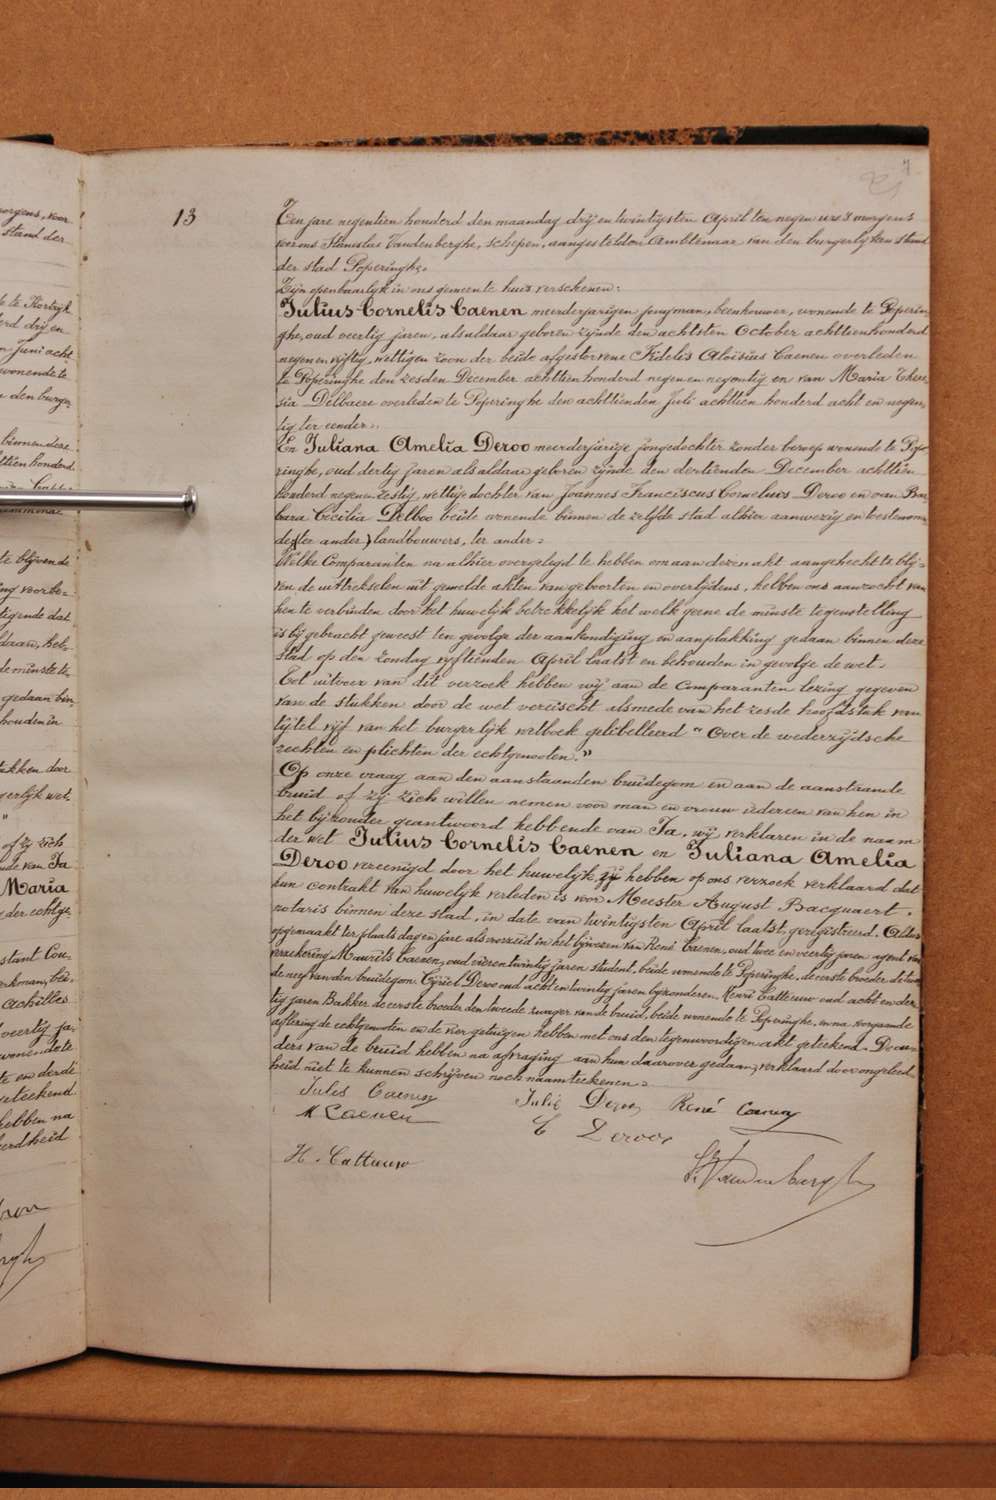 7
13
Ten jare negentien honderd den maandag drij en twintigsten April ten negen ure 's morgens
voor ons Stanislas Vandenberghe, schepen, aangestelden Ambtenaar van den burgerlijken stand
der stad Poperinghe.
Zijn openbaarlijk in ons gemeente huis verschenen:
Julius Cornelis Caenen meerderjarigen jongman, beenhouwer, wonende te Poperin-
ghe, oud veertig jaren, als aldaar geboren zijnde den achtsten October achttienhonderd
negen en vijftig, wettigen zoon der beide afgestorvene Fidelis Aloisius Caenen overleden
te Poperinghe den zesden December achttien honderd negen en negentig en van Maria There-
sia Delbaere overleden te Poperinghe den achttienden Juli achttien honderd acht en negen-
tig ter eender.
En Juliana Amelia Deroo meerderjarige jongedochter zonder beroep wonende te Pope-
ringhe, oud dertig jaren als aldaar geboren zijnde den dertienden December achttien
honderd negen en zestig, wettige dochter van Joannes Franciscus Cornelius Deroo en van Bar-
bara Cecilia Delboo beide wonende binnen de zelfde stad alhier aanwezig en toestemmen
de (ter ander) landbouwers, ter ander.
Welke Comparanten na alhier overgelegd te hebben om aan dezen akt aangehecht te blij-
ven de uittrekselen uit gemelde akten van geboorten en overlijdens, hebben ons aanzocht van
hen te verbinden door het huwelijk betrekkelijk het welk geene de minste tegenstelling
is bijgebracht geweest ten gevolge der aankondiging en aanplakking gedaan binnen deze
stad op den zondag vijftienden April laatst en behouden in gevolge de wet.
Tot uitvoer van dit verzoek hebben wij aan de Comparanten lezing gegeven
van de stukken door de wet vereischt alsmede van het zesde hoofdstuk van
tijtel vijf van het burgerlijk wetboek gelibelleerd "Over de wederzijdsche
rechten en plichten der echtgenooten."
Op onze vraag aan den aanstaanden bruidegom en aan de aanstaande
bruid of zij zich willen nemen voor man en vrouw iedereen van hen in
het bijzonder geantwoord hebbende van Ja, wij verklaren in de naam
der wet Julius Cornelis Caenen en Juliana Amelia
Deroo vereenigd door het huwelijk zij hebben op ons verzoek verklaard dat
hun contrakt van huwelijk verleden is voor Meester August Bacquaert,
notaris binnen deze stad, in date van twintigsten April laatst, geregistreerd. Aldus
opgemaakt ter plaats dag en jare als voorzeid in het bijwezen van René Caenen, oud twee en veertig jaren agent van
verzekering Maurits Caenen, oud vier en twintig jaren student, beide wonende te Poperinghe, de eerste broeder de tweede
de neef van den bruidegom. Cyriel Deroo oud acht en twintig jaren bijzonderen, Henri Catteeuw oud acht en der-
tig jaren Bakker de eerste broeder den tweede zwager van de bruid, beide wonende te Poperinghe, en na voorgaande
aflezing de echtgenooten en de vier getuigen hebben met ons den tegenwoordigen akt geteekend. De ou-
ders van de bruid hebben na afvraging aan hun daarover gedaan, verklaard door ongeleerd-
heid niet te kunnen schrijven noch naamteekenen.
Jules Caenen
Julie Deroo René Caenen
M Caenen
C Deroo
H. Catteeuw
S. Vandenberghe